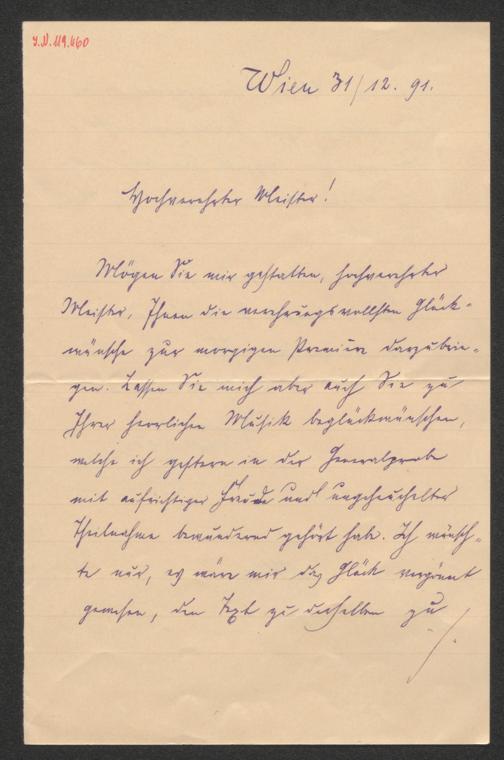 I.N. 119.660
Wien 31/12. 91.
Hochverehrter Meister!
Mögen Sie mir gestatten, hochverehrter
Meister, Ihnen die verehrungsvollsten Glück-
wünsche zur morgigen Premiere darzubrin-
gen. Lassen Sie mich aber auch Sie zu
Ihrer herrlichen Musik beglückwünschen,
welche ich gestern in der Generalprobe
mit aufrichtiger Freude und ungeheuchelter
Theilnahme bewundernd gehört habe. Ich wünsch-
te nur, es wäre mir das Glück vergönnt
gewesen, den Text zu derselben zu
./.